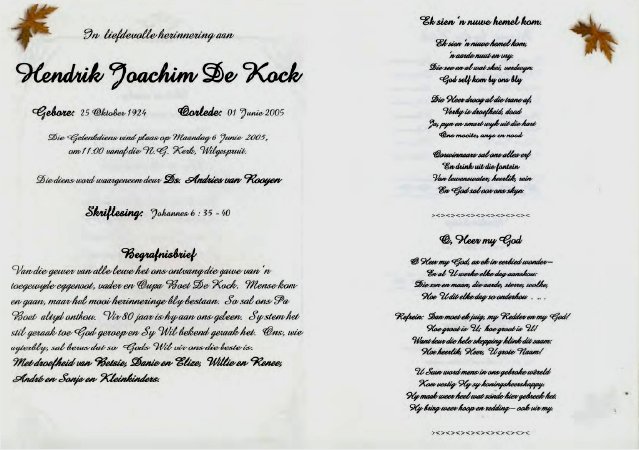 In liefdevolle herinnering aan
Hendrik Joachim De Kock
Gebore: 25 Oktober 1924 Oorlede: 01 Junie 2005
Die Gedenkdiens vind plaas op Maandag 6 Junie 2005,
om 11:00 vanaf die N.G. Kerk, Wilgespruit.
Die diens word waargeneem deur Ds. Andries van Rooyen
Skriflesing: Johannes 6 : 35 - 40
Begrafnisbrief
Van die gewer van alle lewe het ons ontvang die gawe van 'n
toegewyde eggenoot, vader en Oupa Boet De Kock. Mense kom
en gaan, maar hul mooi herinneringe bly bestaan. So sal ons Pa
Boet altyd onthou. Vir 80 jaar is hy aan ons geleen. Sy stem het
stil geraak toe God geroep en Sy Wil bekend gemaak het. Ons, wie
agterbly, sal berus dat so Gods Wil vir ons die beste is.
Met droefheid van Betsie, Danie en Elize, Willie en Renee,
André en Sonja en Kleinkinders.
Ek sien 'n nuwe hemel kom.
Ek sien 'n nuwe hemel kom,
'n aarde nuut en vry:
Die see en al wat skei, verdwyn:
God self kom by ons bly
Die Heer droog al die trane af,
Verby is droefheid, dood
Ja, pyn en smart wyk uit die hart
Ons moeite, angs en nood
Oorwinnaars sal ons alles erf
En drink uit die fontein
Van lewenswater, heerlik, rein
En God sal oor ons skyn
><><><><><><><><><
O, Heer my God
O Heer my God, as ek in eerbied wonder—
En al U werke elke dag aanskou:
Die son en maan, die aarde, sterre, wolke,
Hoe U dit elke dag so onderhou . . . .
Refrein: Dan moet ek juig, my Redder en my God!
Hoe groot is U, hoe groot is U!
Want deur die hele skepping klink dit saam:
Hoe heerlik, Heer, U grote Naam!
U Seun word mens in ons gebroke wêreld
Kom vestig Hy sy koningsheerskappy.
Hy maak weer heel wat sonde hier gebreek het.
Hy bring weer hoop en redding— ook vir my.
><><><><><><><><><